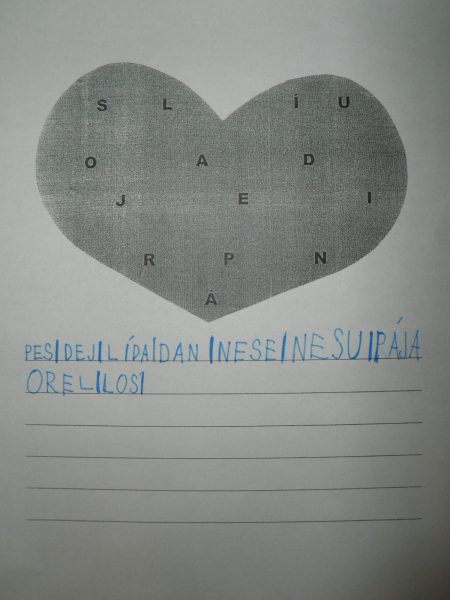 S L Í U
O A D
J E I
R P N
Á
PES|DEJ|L ÍPA|DAN |NESE|NESU|PÁJA
OREL|LOS|